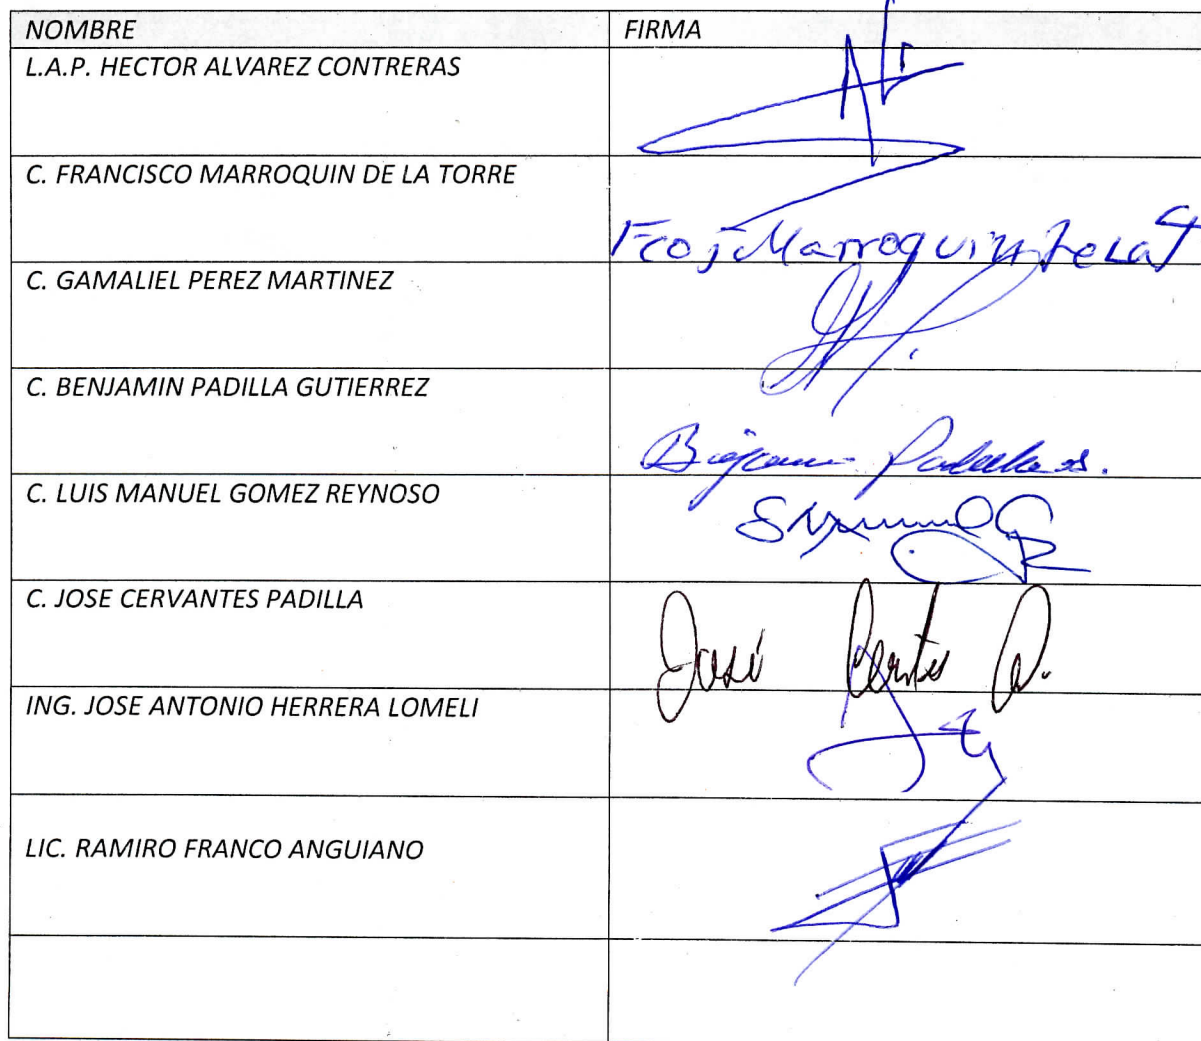 NOMBRE FIRMA
L.A.P. HECTOR ALVAREZ CONTRERAS
C. FRANCISCO MARROQUIN DE LA TORRE
Fco j Marroquin
C. GAMALIEL PEREZ MARTINEZ
C. BENJAMIN PADILLA GUTIERREZ
Padilla
C. LUIS MANUEL GOMEZ REYNOSO
C. JOSE CERVANTES PADILLA
José P.
ING. JOSE ANTONIO HERRERA LOMELI
LIC. RAMIRO FRANCO ANGUIANO